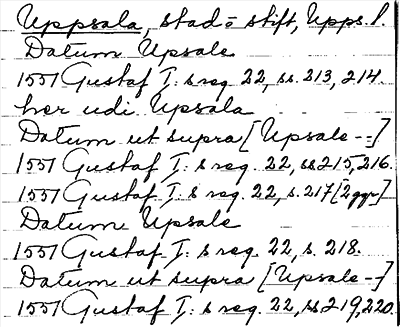 Uppsala, stad o stift, Upps. l.
Datum Upsale
1551 Gustaf I: s reg. 22, ss. 213, 214.
her udi Upsala
Datum ut supra [Upsale --]
1551 Gustaf I: s reg. 22, ss 215, 216.
1551 Gustaf I: s reg. 22, s. 217 [2 ggr]
Datum Upsale
1551 Gustaf I: s reg. 22, s. 218.
Datum ut supra [Upsale --]
1551 Gustaf I: s reg. 22, ss 219, 220.